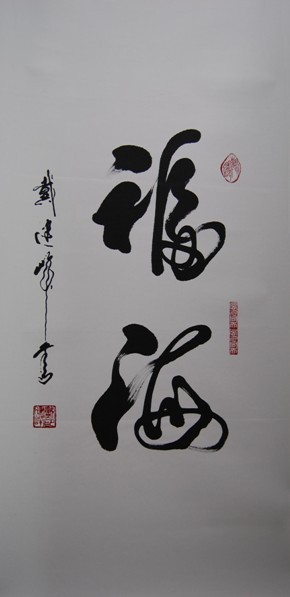 福海
戴建峰书